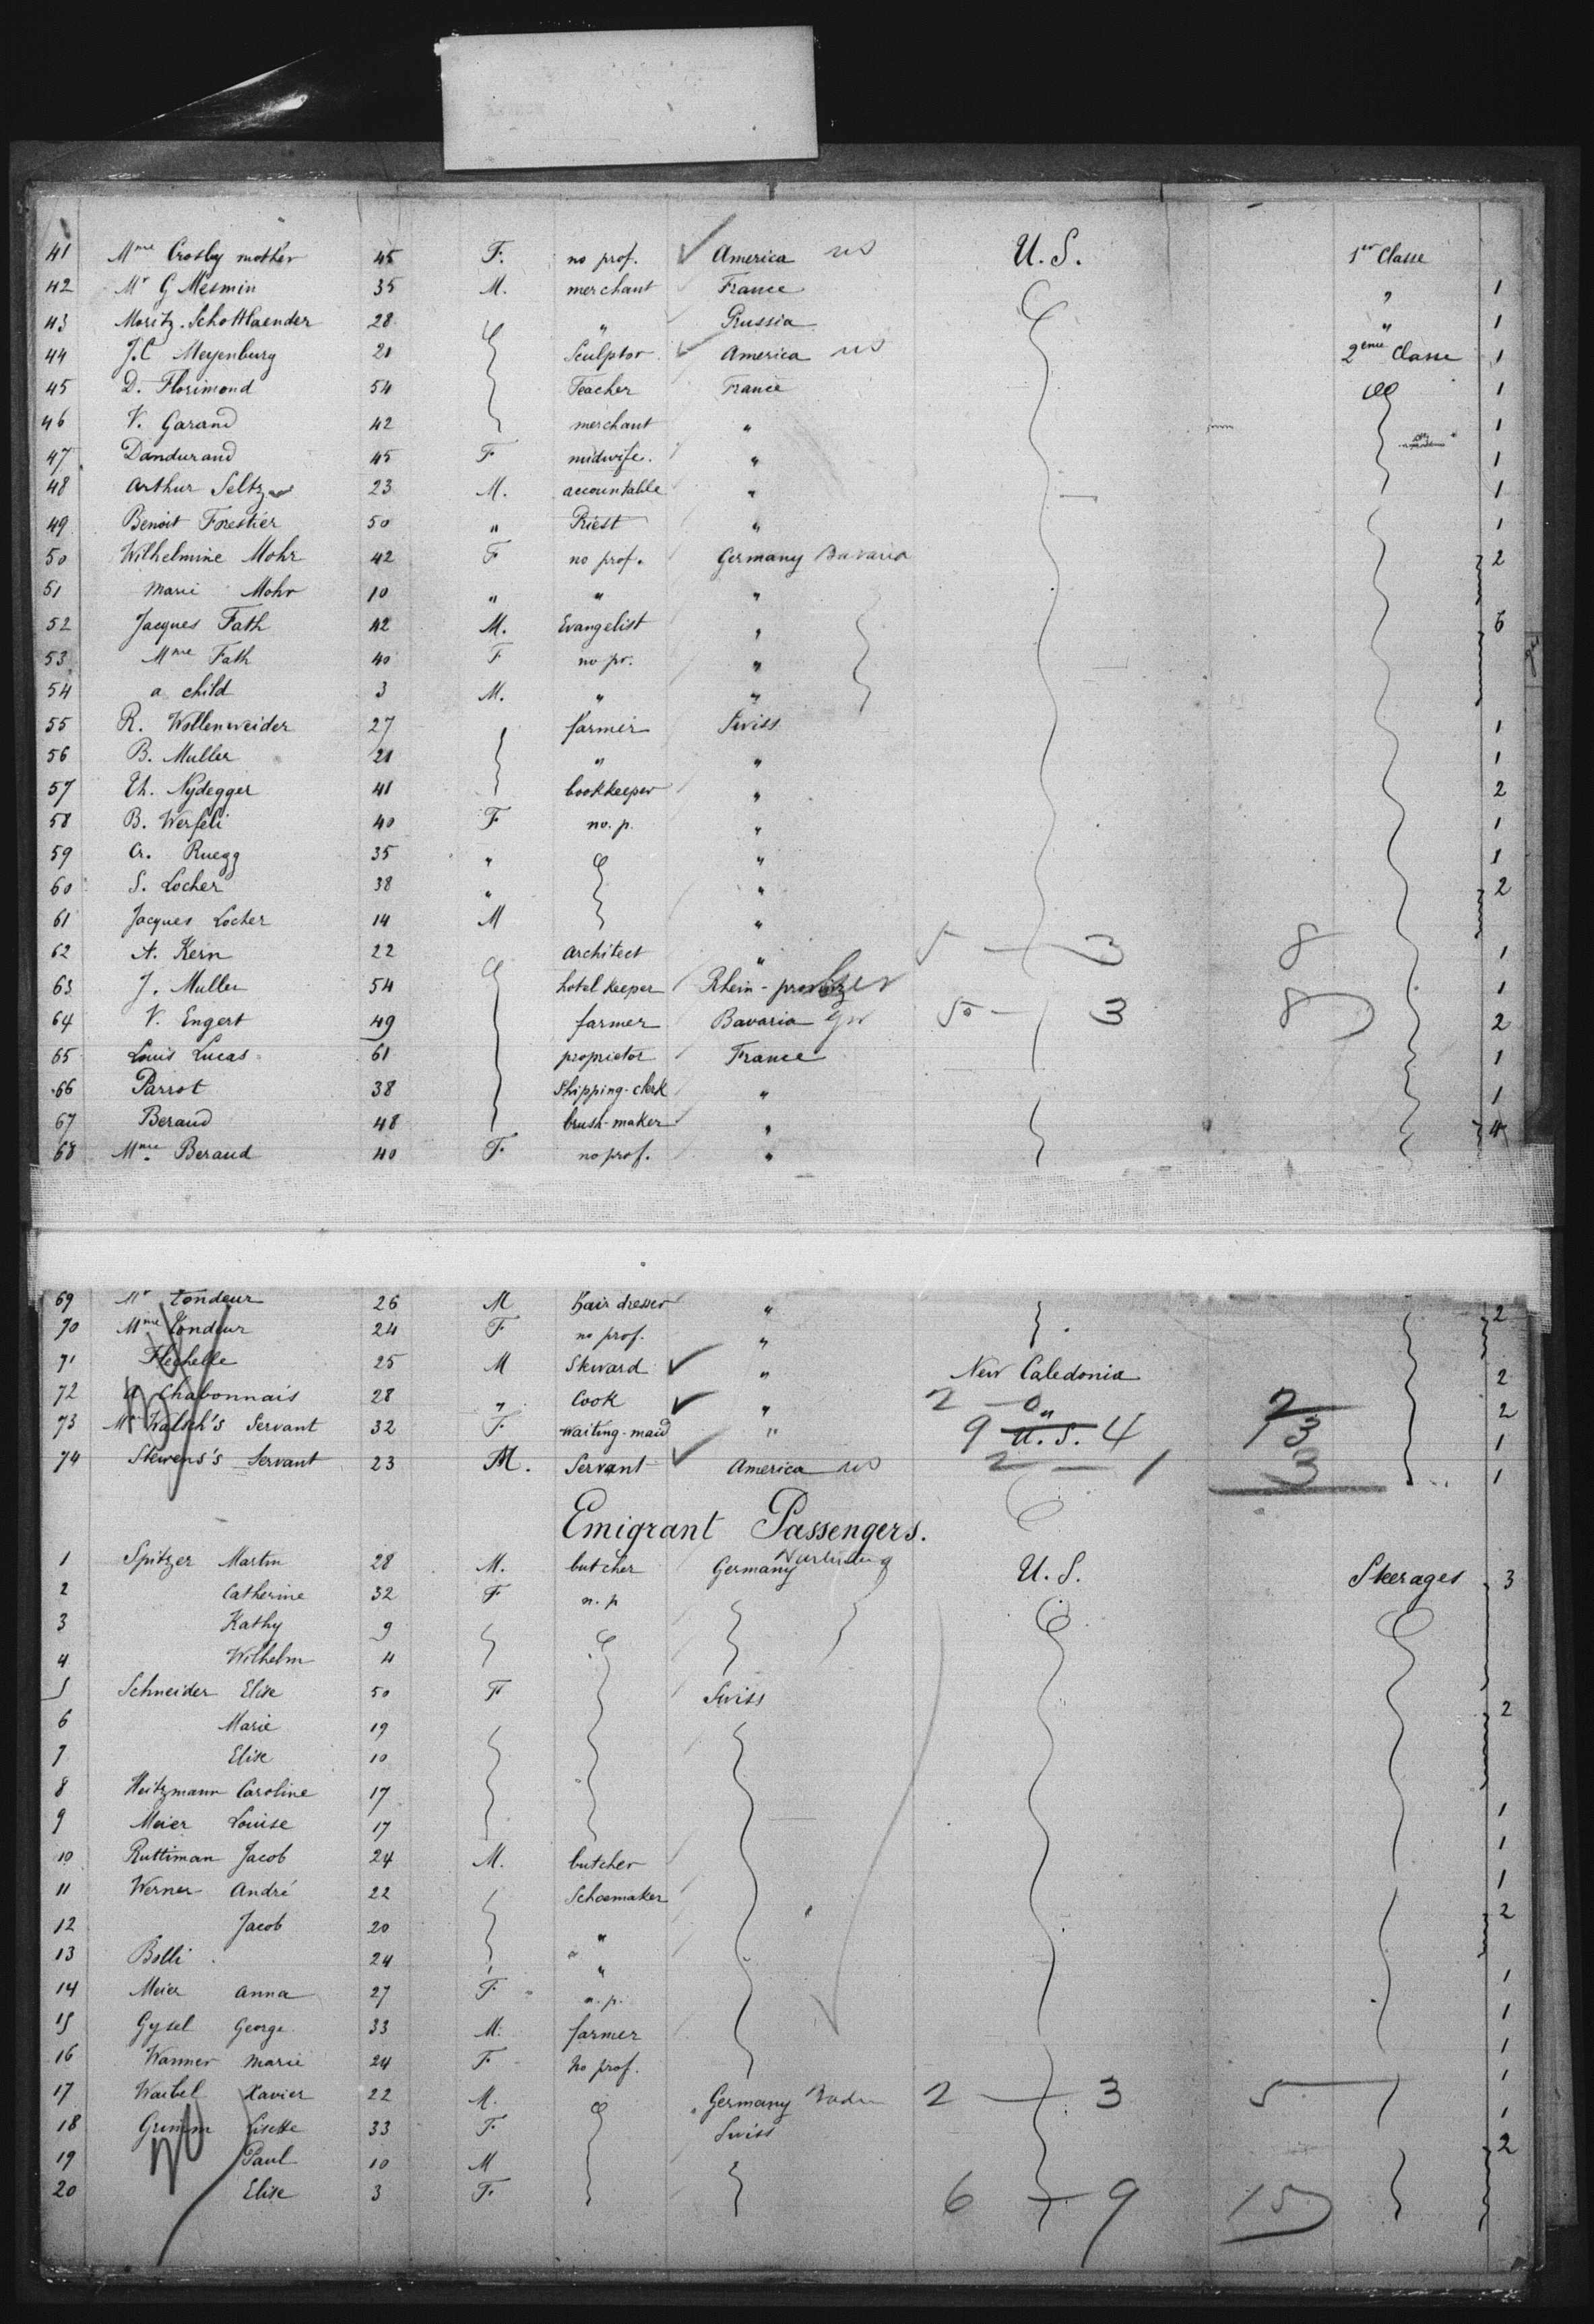 41 Mme Crosby mother 45 F. no prof. ✓ America US U.S. 1er Classe
42 Mr G Mesmin 35 M. merchant France " 1
43 Moritz. Schottlaender 28 " Prussia " 1
44 J.C Meyenburg 21 Sculptor ✓ America US 2ème Classe 1
45 D. Florimond 54 Teacher France 1
46 V. Garand 42 merchant " 1
47 Dandurand 45 F midwife. " 1
48 Arthur Seltz 23 M. accountable " 1
49 Benoit Forestier 50 " Priest " 1
50 Wilhelmine Mohr 42 F no prof. Germany Bavaria 2
51 Marie Mohr 10 " " "
52 Jacques Fath 42 M. Evangelist " 6
53 Mme Fath 40 F no pr. "
54 a child 3 M. " "
55 R. Wollenweider 27 farmer Swiss 1
56 B. Muller 21 " " 1
57 Th. Nydegger 41 bookkeeper " 2
58 B. Werfeli 40 F no. p. " 1
59 Cr. Ruegg 35 " " 1
60 S. Locher 38 " " 2
61 Jacques Locher 14 M "
62 A. Kern 22 Architect " 5 3 8 1
63 J. Muller 54 hotel keeper Rhein - 1
64 V. Engert 49 farmer Bavaria Ger 5 3 8 2
65 Louis Lucas 61 proprietor France 1
66 Parrot 38 Shipping-clerk " 1
67 Beraud 48 brush-maker " 4
68 Mme. Beraud 40 F. no prof. "
69 Mr Tondeur 26 M Hair dresser " 2
70 Mme Tondeur 24 F no prof. "
71 Flechelle 25 M Steward ✓ " New Caledonia 2
72 A Chabonnais 28 " Cook ✓ " 2 0 " 2 2
73 Mr Walsch's Servant 32 F. waiting-maid " 9 U.S. 4 13 1
74 Stewens's Servant 23 M. Servant ✓ America US 2 1 3 1
Emigrant Passengers.
1 Spitzer Martin 28 M. butcher Germany U.S. Steerages 3
2 Catherine 32 F n. p
3 Kathy 9
4 Wilhelm 4
5 Schneider Elise 50 F Swiss
6 Marie 19 2
7 Elise 10
8 Heitzmann Caroline 17
9 Meier Louise 17 1
10 Ruttiman Jacob 24 M. butcher 1
11 Werner André 22 Schoemaker 1
12 Jacob 20 " 2
13 Bolli 24 "
14 Meier Anna 27 F. n. p. 1
15 Gysel George 33 M. farmer 1
16 Wanner Marie 24 F. No prof. 1
17 Waibel Xavier 22 M. Germany Baden 2 3 5 1
18 Grimm Lisette 33 F. Swiss 1
19 Paul 10 M 2
20 Elise 3 F. 6 9 15